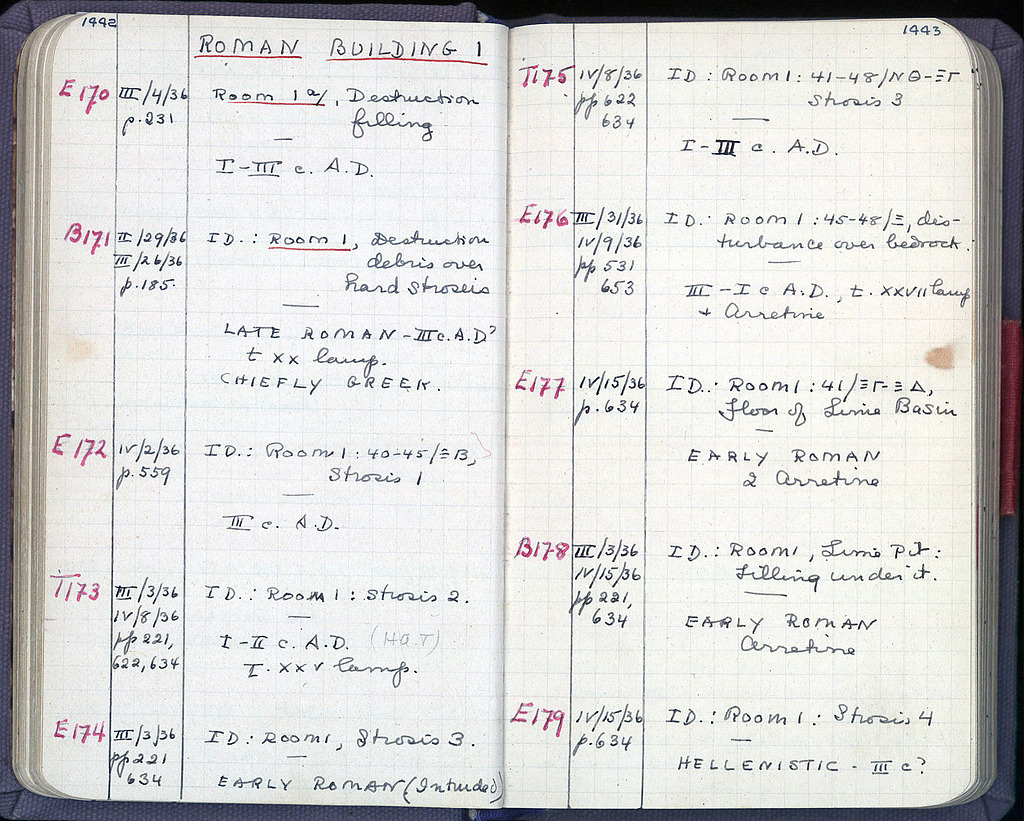 1442
ROMAN BUILDING 1
E170 III/4/36 Room 1 a/, Destruction
p.231 filling
I-III c. A.D.
B171 II/29/36 ID.: Room 1, Destruction
III/26/36 debris over
p.185. hard Stroseis
LATE ROMAN - III c. A.D?
t XX lamp.
CHIEFLY GREEK.
E172 IV/2/36 ID.: Room 1: 40-45/ΞB,
p.559 Strosis 1
III c. A.D.
T173 III/3/36 ID.: Room 1: Strosis 2.
IV/8/36
pp 221, I-II c. A.D. (H.a.T)
622,634 T. XXV lamp.
E174 III/3/36 ID: Room 1, Strosis 3.
pp 221
634 EARLY ROMAN (Intruded)
1443
T175 IV/8/36 ID: Room 1: 41-48/NΘ-ΞΓ
pp 622 Strosis 3
634
I-III c. A.D.
E176 III/31/36 ID: Room 1: 45-48/Ξ, dis-
IV/9/36 turbance over bedrock.
pp 531
653 III-I c A.D., t. XXVII lamp
+ Arretine
E177 IV/15/36 ID.: Room 1: 41/ΞΓ-ΞΔ,
p.634 Floor of Lime Basin
EARLY ROMAN
2 Arretine
B178 III/3/36 ID.: Room 1, Lime Pit:
IV/15/36 Filling under it.
pp 221,
634 EARLY ROMAN
Arretine
E179 IV/15/36 ID.: Room 1: Strosis 4
p.634
HELLENISTIC - III c?